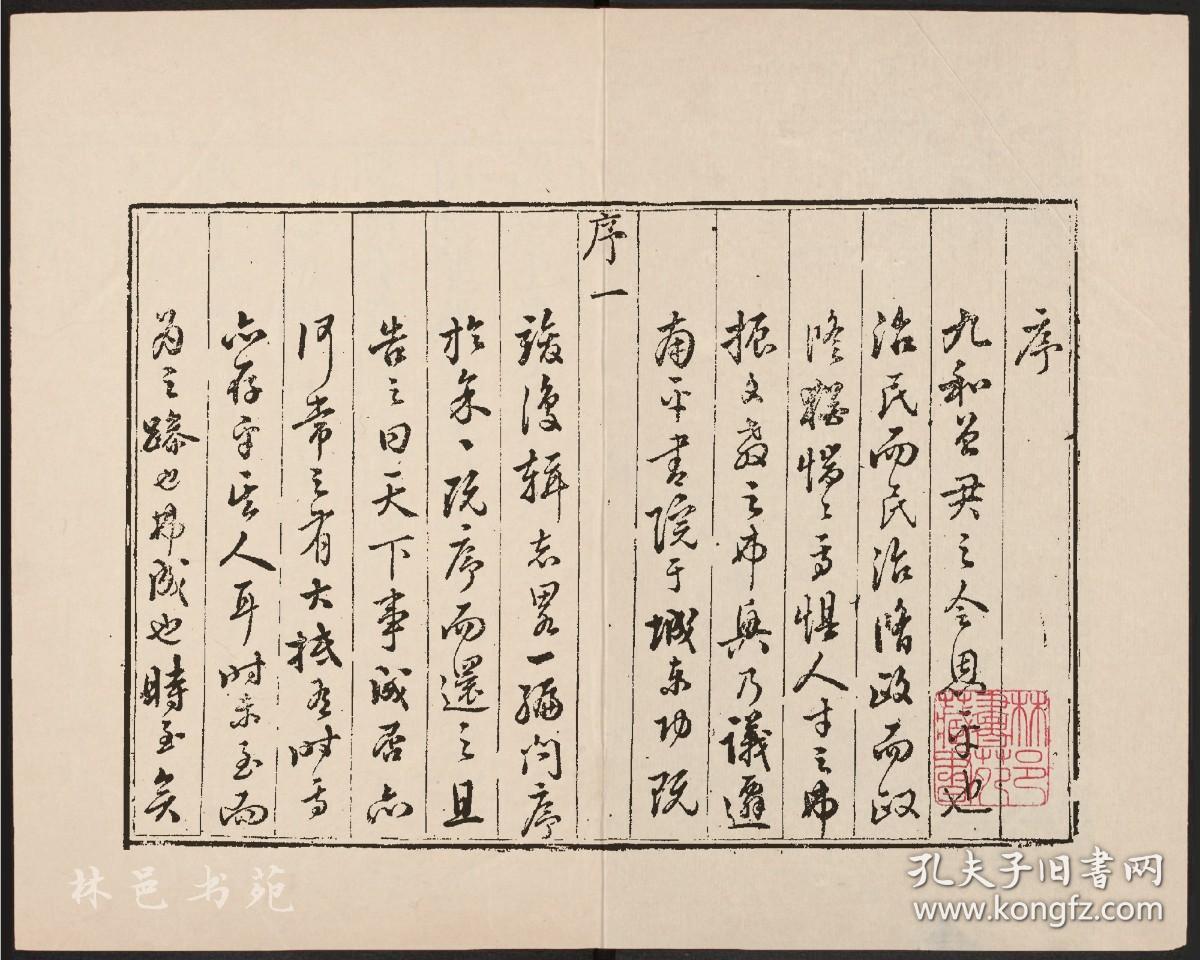 序
九和曾君之令恩平也
治民而民治脩政而政
修猶惴〻焉惧人才之弗
振文教之弗興乃議遷
南平書院于城東功既
序一
竣復輯志畧一編問序
於余〻既序而還之且
告之曰天下事成否亦
何常之有大抵有时焉
亦存乎其人耳时未至而
为之躁也弗成也時至矣
林邑書苑藏書
林邑书苑
孔夫子旧书网
www.kongfz.com